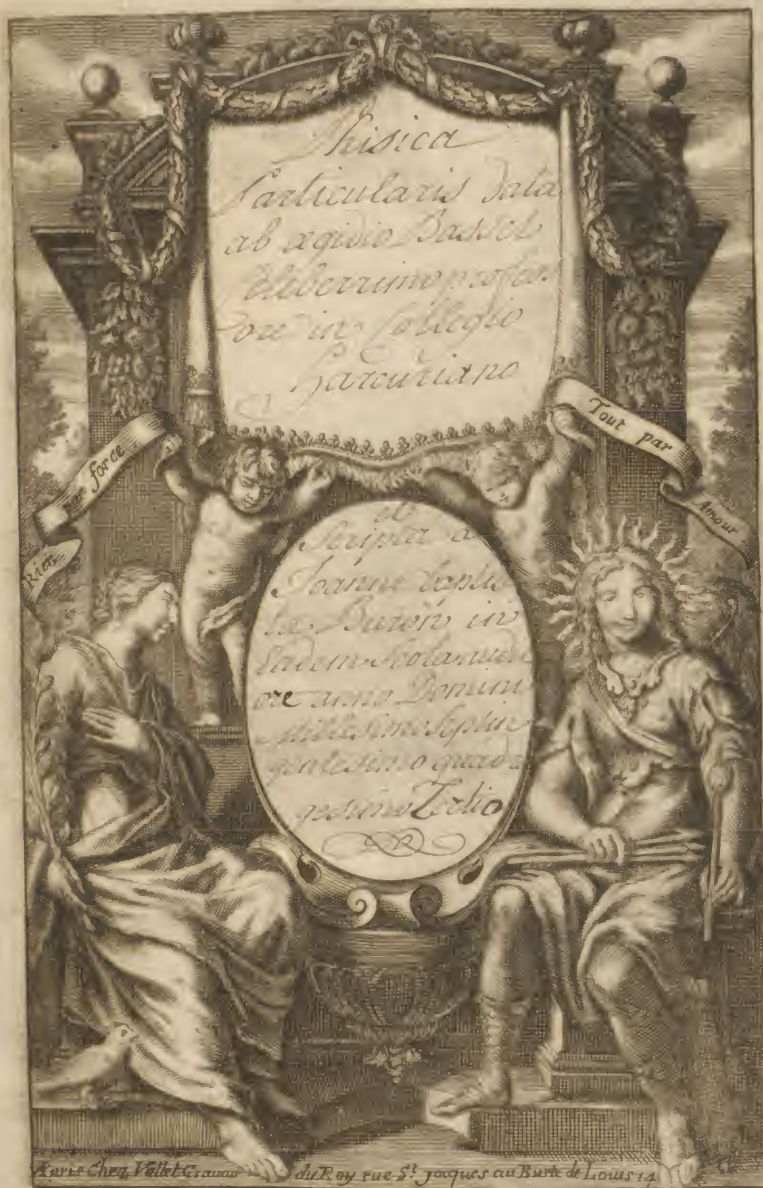 Phisica
Particularis data
ab ægidio Bassel
Celeberrimo profess
ore in Collegio
Harcuriano
Rien par force
Tout par Amour
et
Scripta a
Joanne baptis
ta Buron in
Eadem Scola audit
ore anno Domini
Millesimo Septin
gentesimo quadra
gesimo Tertio
Aparis Chez Vallet Graveur du Roy rue St. Jacques au Buste de Louis 14